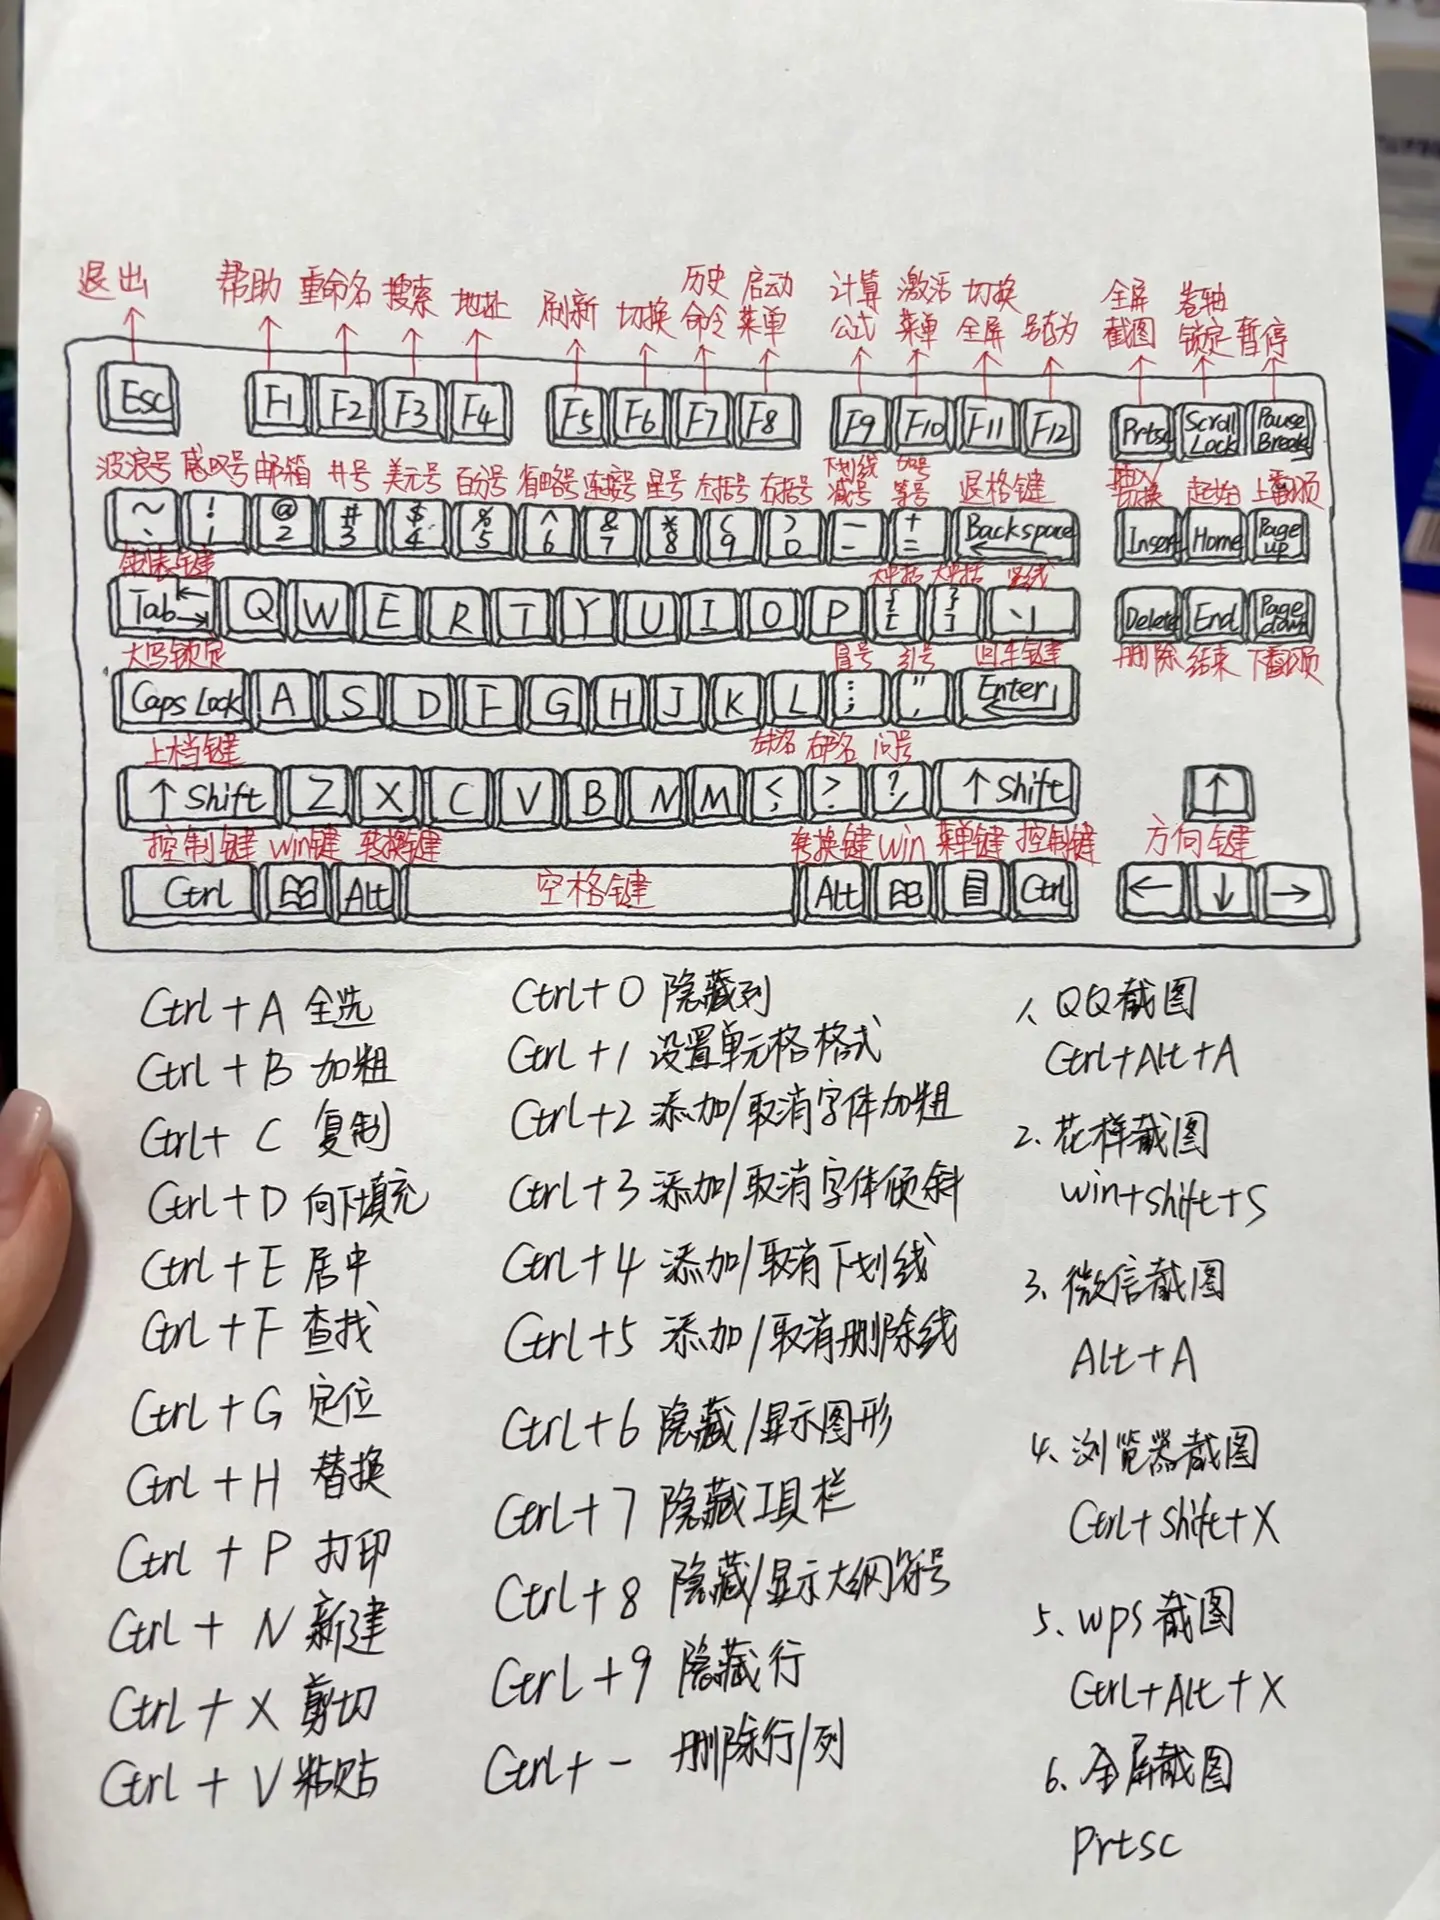 退出 帮助 重命名 搜索 地址 刷新 切换 历史命令 启动菜单 计算公式 激活菜单 切换全屏 另存为 全屏截图 卷轴锁定 暂停
Esc F1 F2 F3 F4 F5 F6 F7 F8 F9 F10 F11 F12 Prtsc Scroll Lock Pause Break
波浪号 感叹号 邮箱 井号 美元号 百分号 省略号 连接号 星号 左括号 右括号 下划线 减号 加号 等号 退格键 插入 切换 起始 上翻页
~ 、 ! 1 @ 2 # 3 $ 4 % 5 ^ 6 & 7 * 8 ( 9 ) 0 — - + = Backspace Insert Home Page up
制表键 大括 大括 竖线
Tab Q W E R T Y U I O P { [ } ] 、 | Delete End Page down
大写锁定 冒号 引号 回车键 删除 结束 下翻页
Caps Lock A S D F G H J K L : ; " , Enter
上档键 左书名 右书名 问号
↑ Shift Z X C V B N M < , > . ? / ↑ Shift ↑
控制键 win键 转换键 转换键 win 菜单键 控制键 方向键
Ctrl Alt 空格键 Alt Ctrl ← ↓ →
Ctrl + A 全选
Ctrl + B 加粗
Ctrl + C 复制
Ctrl + D 向下填充
Ctrl + E 居中
Ctrl + F 查找
Ctrl + G 定位
Ctrl + H 替换
Ctrl + P 打印
Ctrl + N 新建
Ctrl + X 剪切
Ctrl + V 粘贴
Ctrl+0 隐藏列
Ctrl+1 设置单元格格式
Ctrl+2 添加/取消字体加粗
Ctrl+3 添加/取消字体倾斜
Ctrl+4 添加/取消下划线
Ctrl+5 添加/取消删除线
Ctrl+6 隐藏/显示图形
Ctrl+7 隐藏工具栏
Ctrl+8 隐藏/显示大纲符号
Ctrl+9 隐藏行
Ctrl+- 删除行/列
1、QQ截图
Ctrl+Alt+A
2、花样截图
win+shift+S
3、微信截图
Alt+A
4、浏览器截图
Ctrl+shift+X
5、wps截图
Ctrl+Alt+X
6、全屏截图
Prtsc